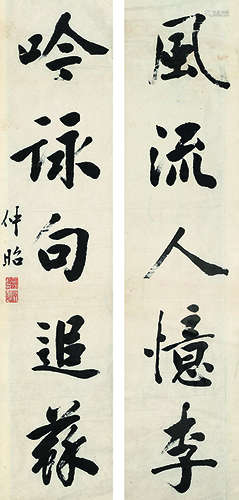 風流人憶李
吟詠句追蘇
仲昭